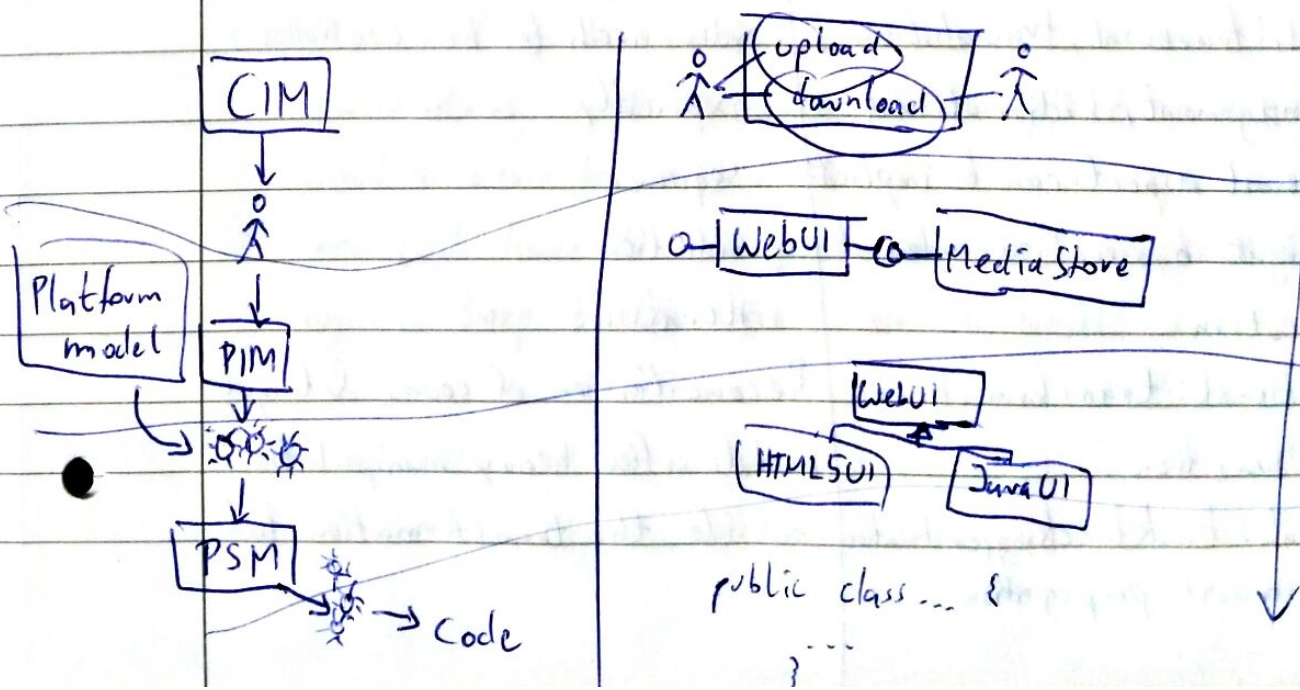 CIM
Platform
model
PIM
PSM
Code
upload
download
WebUI
MediaStore
WebUI
HTML5UI
JavaUI
public class... {
...
}